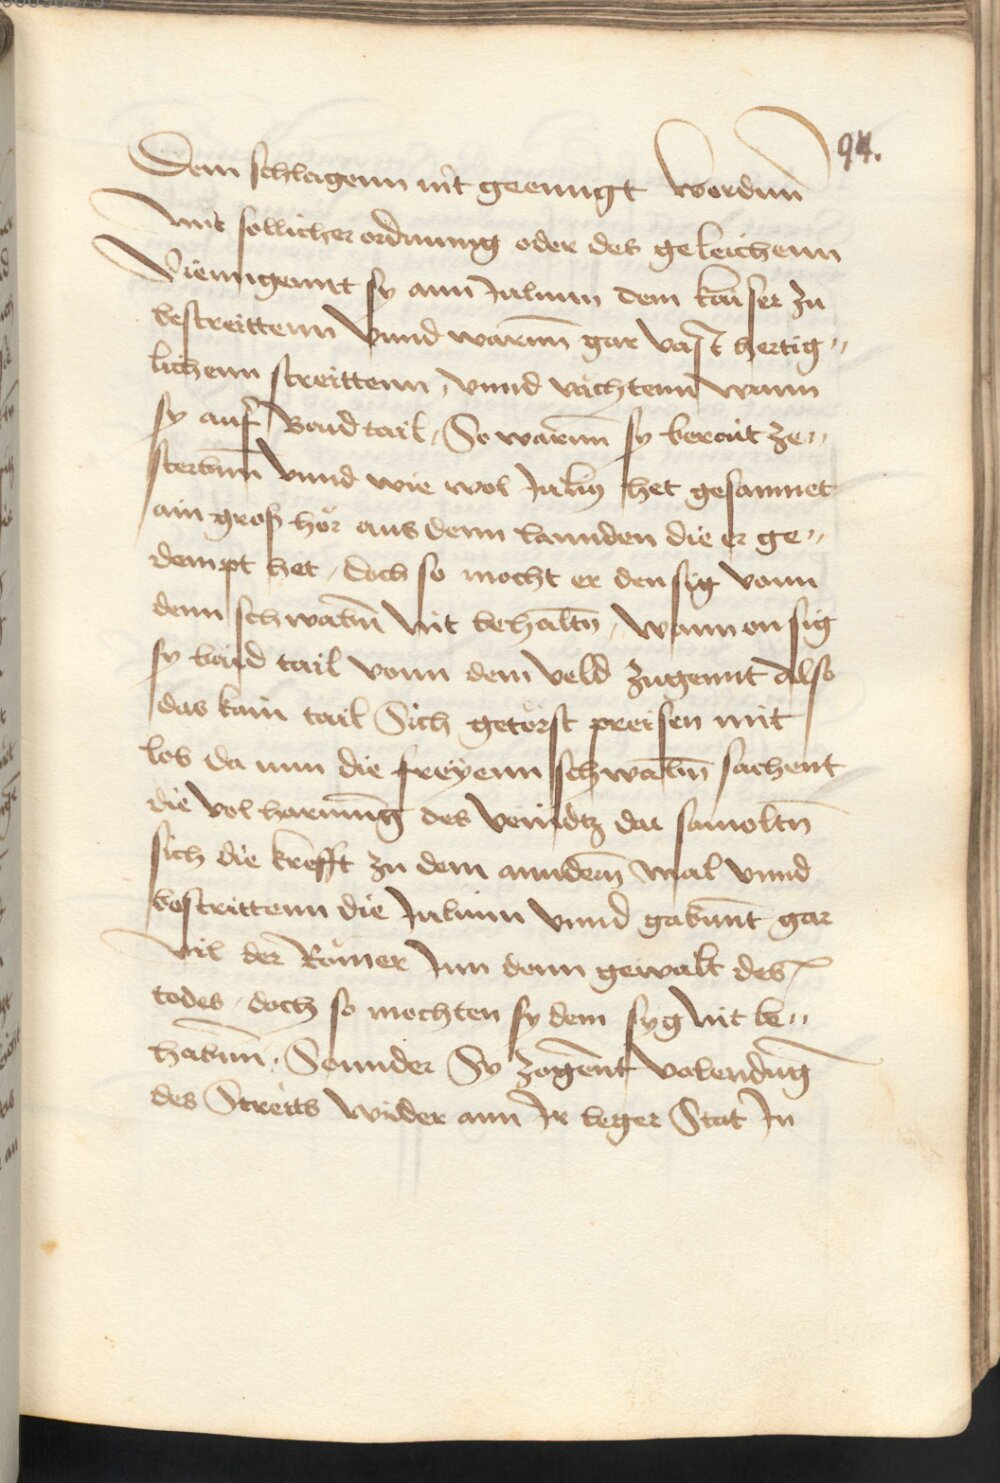 94.
Dem schlagenn nit geenngt wordnn
mit sollicher ordnung oder des geleichenn
Vienngennt sy ann Julium dem kaiser zu
bestreittenn Vnnd warnn gar vast hertig„
lichenn streittenn, vnnd vächtenn wann
sy auf Baid tail, So warnn sy berait ze„
sterbnn vnnd wie wol Julius het gesamnet
ain groß hör aus denn lannden die er ge„
dempt het, doch so mocht er den sig vonn
denn schwabn̄ nit behaltn̄, wann on sig
sy baid tail vonn dem veld zugennt Also
das kain tail Sich getörst preisen mit
lob da nun die freyenn schwabn̄ sachent
die vol harnng des veindtz da samoltn̄
sich die krefft zu dem anndern̄ mal vnnd
bestrittenn die Julium vnnd gabnnt gar
vil der Römer Inn denn gewalt des
todes, doch so mochten sy dem syg nit be„
habnn, Sonnder Sy zogent volendung
des Streits wider ann Ir leger Stat In